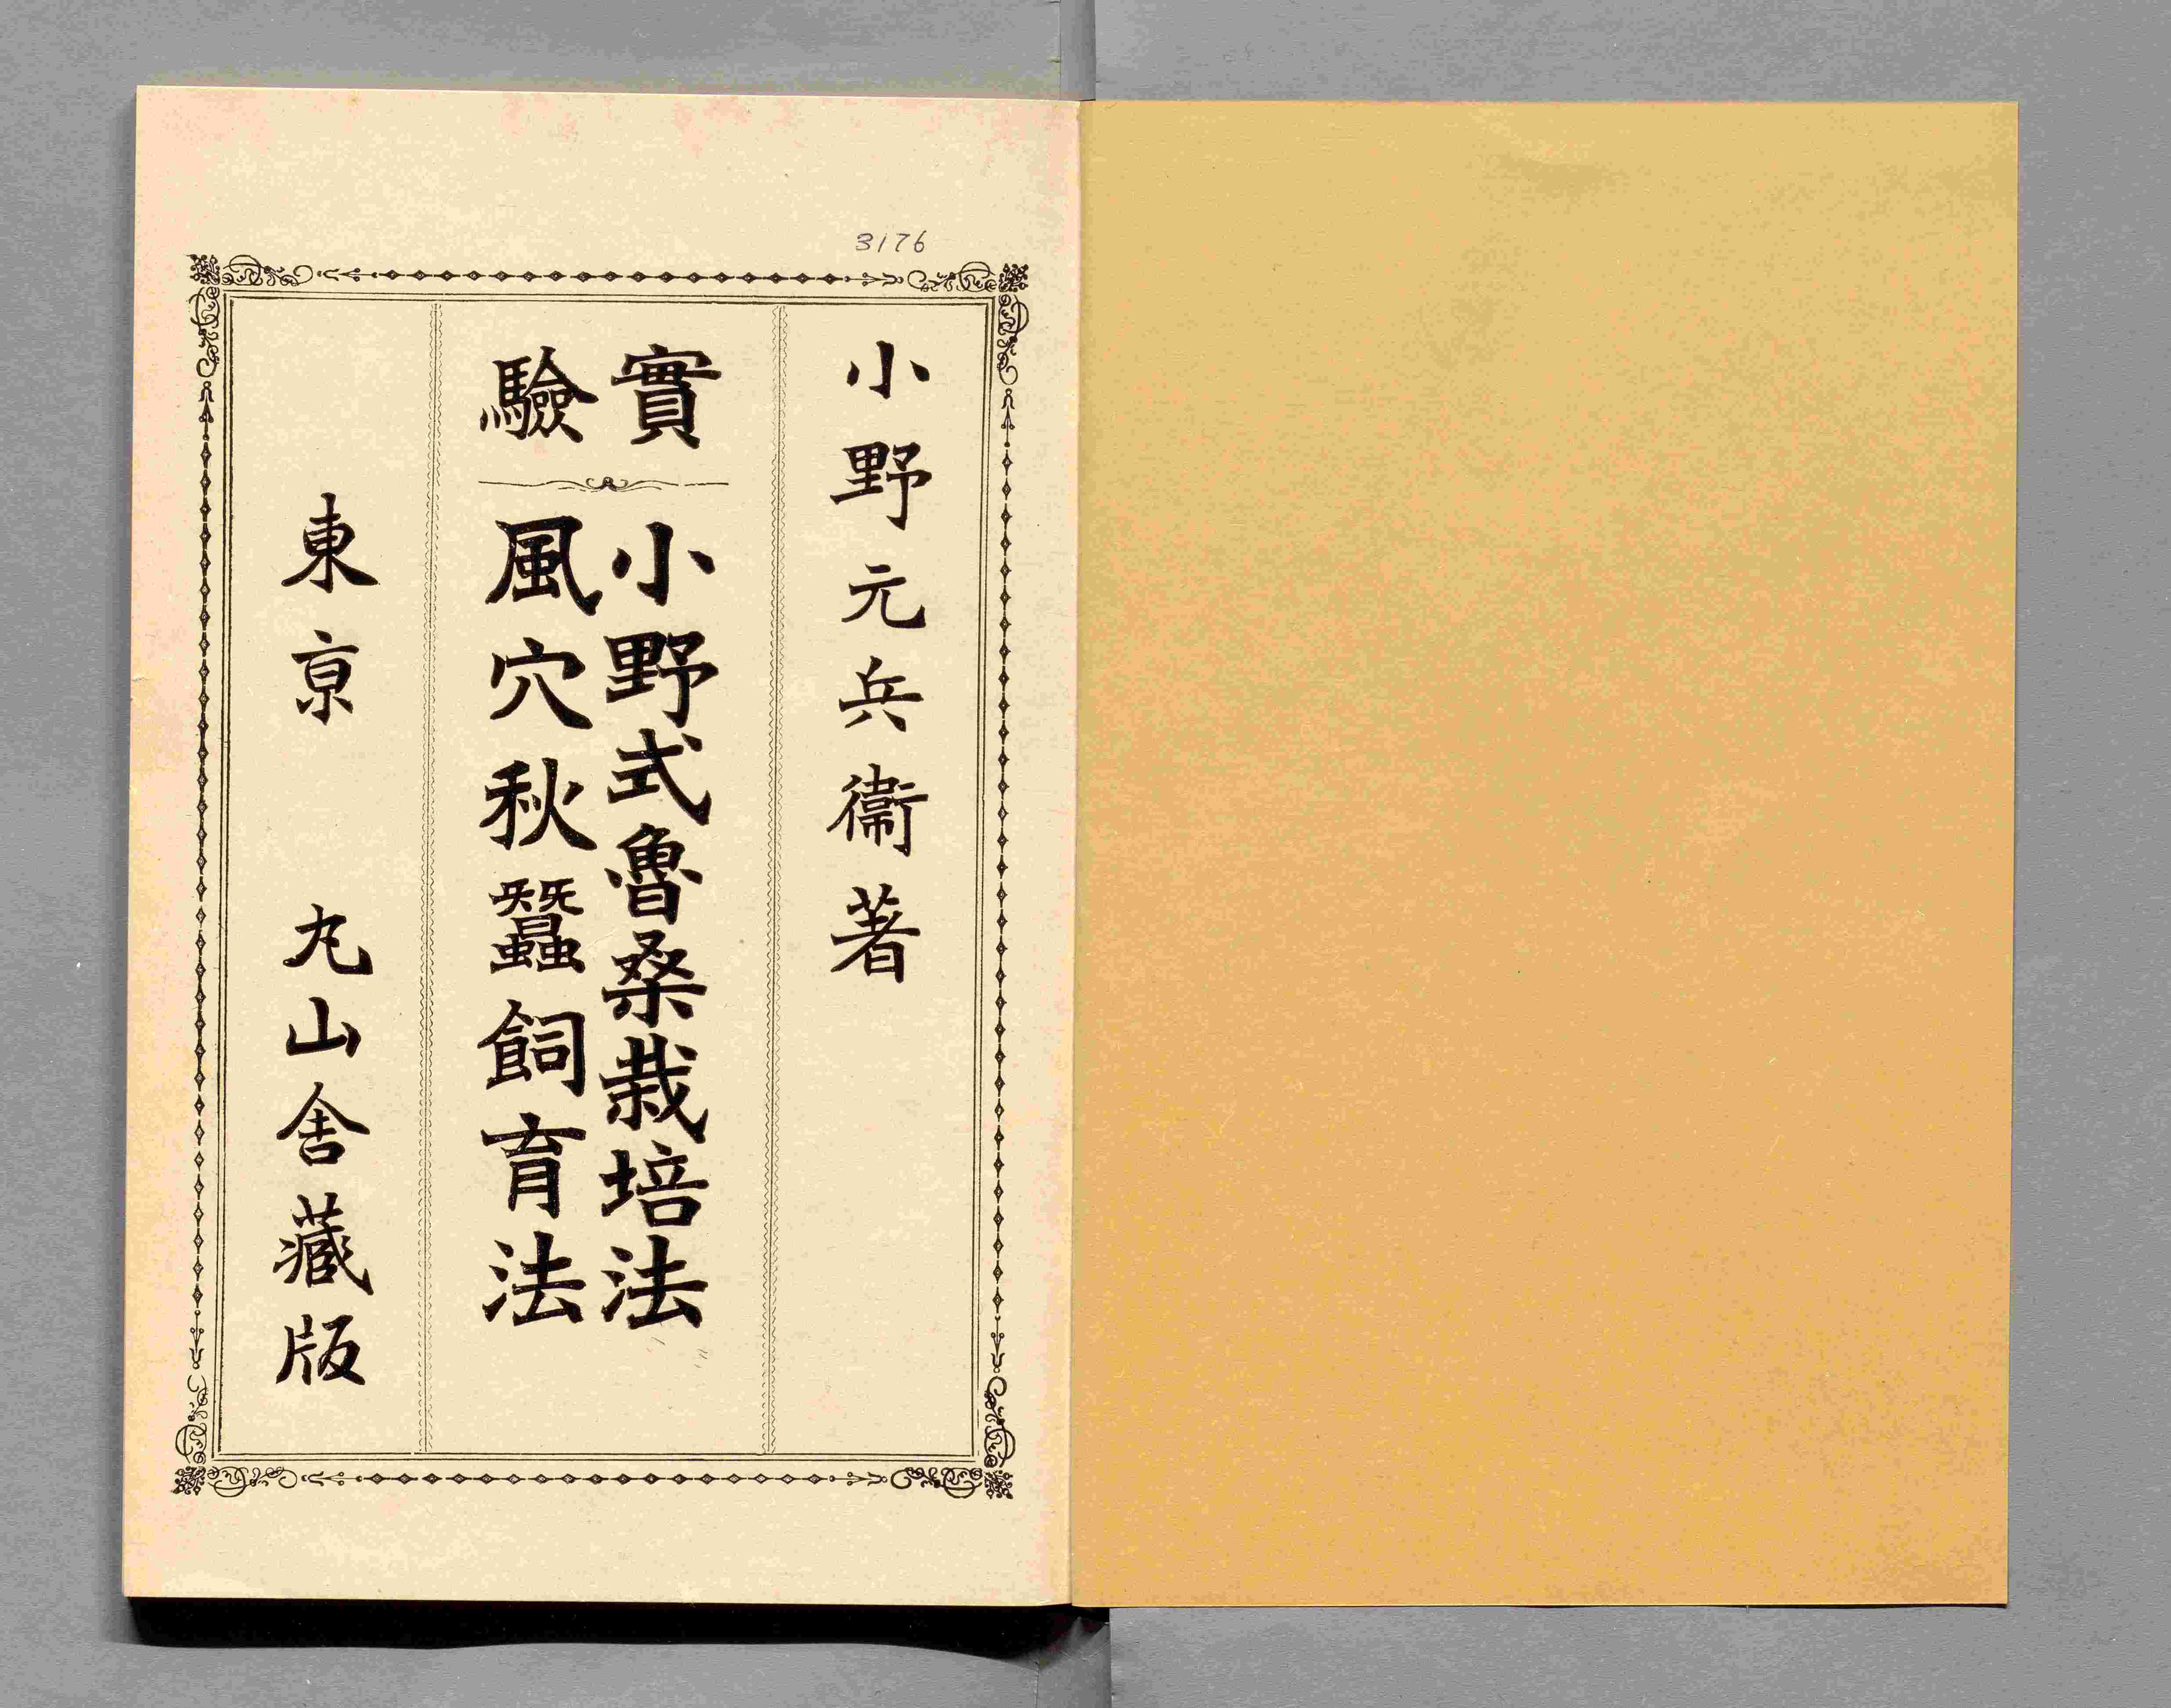 3176
小野元兵衞著
實驗
小野式魯桒栽培法
風穴秋蠶飼育法
東亰 丸山舎藏版